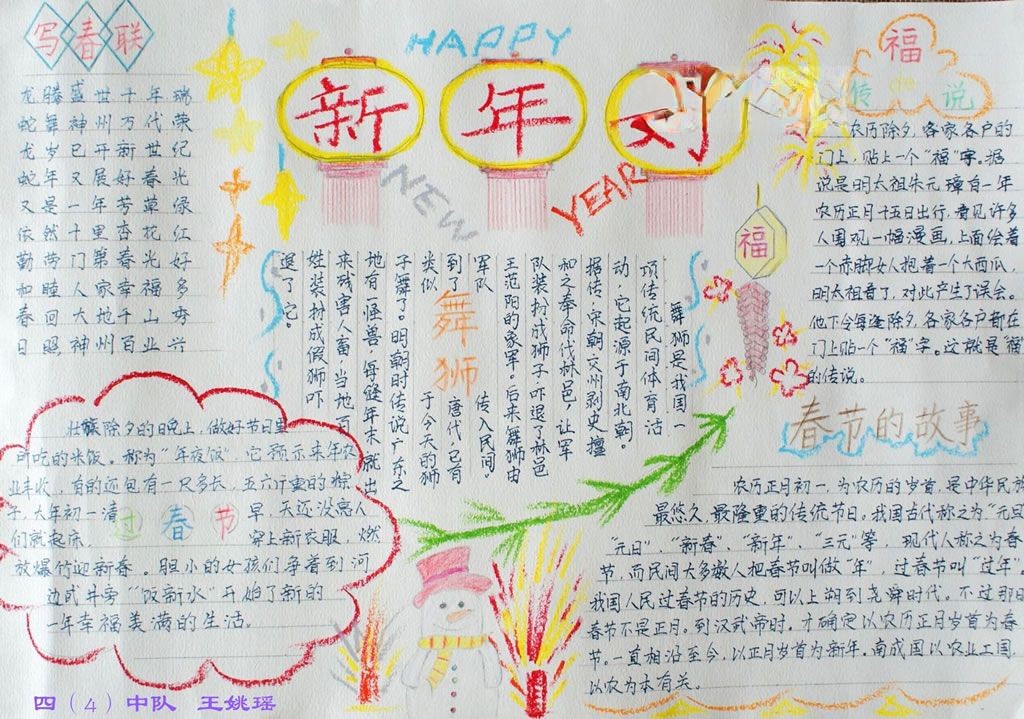 写春联
龙腾盛世十年瑞
蛇舞神州万代荣
龙岁已开新世纪
蛇年又展好春光
又是一年芳草绿
依然十里杏花红
勤劳门第春光好
和睦人家幸福多
春回大地千山秀
日照神州百业兴
HAPPY
新年好
NEW
YEAR
福
传说
农历除夕，各家各户的
门上，贴上一个“福”字。据
说是明太祖朱元璋自一年
农历正月十五日出行，看见许多
人围观一幅漫画，上面绘着
一个赤脚女人抱着一个大西瓜，
明太祖看了，对此产生了误会。
他下令每逢除夕，各家各户都在
门上贴一个“福”字。这就是“福”
的传说。
福
舞狮
舞狮是我国一
项传统民间体育活
动，它起源于南北朝。
据传，宋朝交州剥史擅
和之奉命代林邑，让军
队装扮成狮子吓退了林邑
王范阳的象军。后来舞狮由
军队传入民间。
到了唐代已有
类似于今天的狮
子舞了。明朝时传说广东之
地有一怪兽，每缝年末就出
来残害人畜，当地百
姓装扮成假狮吓
退了它。
过春节
壮族除夕的日晚上，做好节日里
所吃的米饭。称为“年夜饭”，它预示来年农
业丰收，有的还包有一尺多长，五六斤重的粽
子，大年初一清早，天还没亮人
们就起床，穿上新衣服，燃
放爆竹迎新春。胆小的女孩们争着到河
边或井旁“汲新水”开始了新的
一年幸福美满的生活。
春节的故事
农历正月初一，为农历的岁首，是中华民族
最悠久，最隆重的传统节日。我国古代称之为“元旦”
“元日”、“新春”、“新年”、“三元”等，现代人称之为春
节，而民间大多数人把春节叫做“年”，过春节叫“过年”。
我国人民过春节的历史，可以上溯到尧舜时代。不过那时
春节不是正月。到汉武帝时，才确定以农历正月岁首为春
节。一直相沿至今，以正月岁首为新年。南成国以农业工国，
以农为本有关。
四（4）中队 王姚瑶